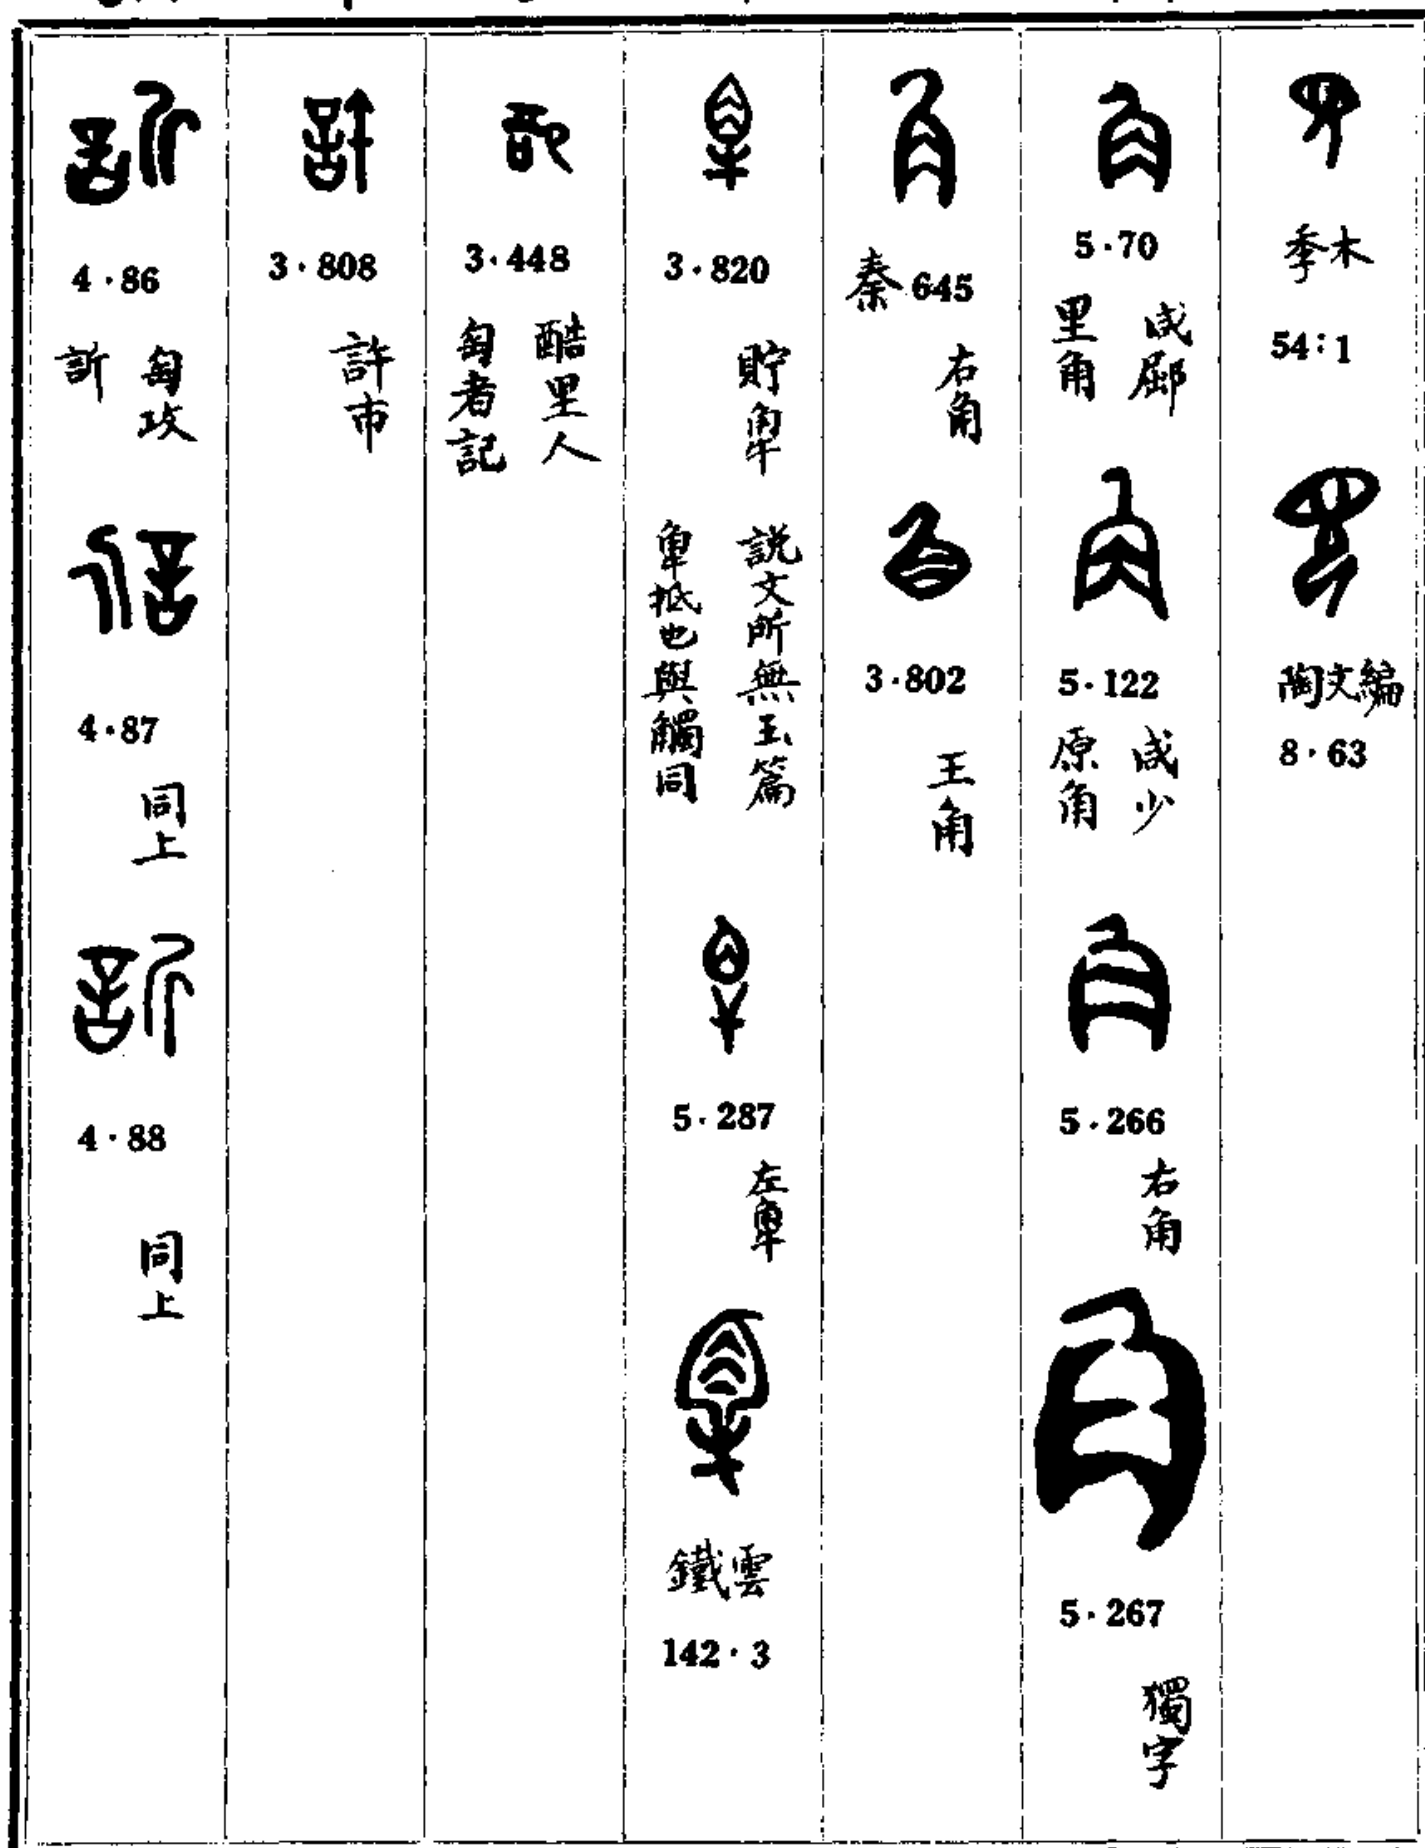 季木
54:1
陶文編
8·63
5·70
咸郿
里角
5·122
咸少
原角
5·266
右角
5·267
獨字
秦645
右角
3·802
王角
3·820
貯𧢻
說文所無玉篇
𧢻抵也與觸同
5·287
左𧢻
鐵雲
142·3
3·448
酷里人
匋者記
3·808
許市
4·86
匋攻
訢
4·87
同上
4·88
同上